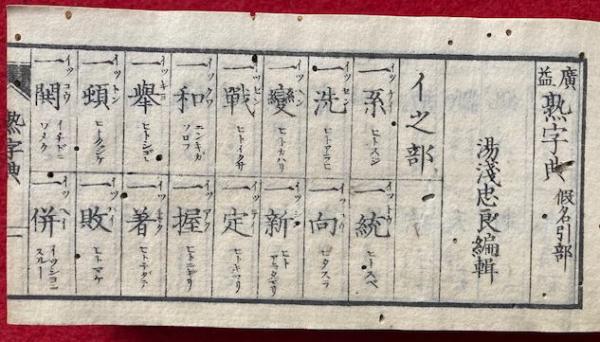 廣益熟字典 假名引部
湯淺忠良編輯
イ之部
一系 イツケイ
一統 イツトウ ヒトスベ
一洗 イツセン ヒトアラヒ
一向 イツカウ ヒタスラ
一變 イツヘン ヒトカハリ
一新 イツシン ヒトアラタマリ
一戰 イツセン ヒトイクサ
一定 イツテイ ヒトキマリ
一和 イツクワ ニンキガソロフ
一握 イツアク ヒトニギリ
一舉 イツキヨ
一著 イツチヤク ヒトテダテ
一頓 イツトン ヒトクジケ
一敗 イツパイ ヒトマケ
一鬨 イツコウ イチドニワメク
一併 イツヘイ イツシヨニスル
熟字典 一